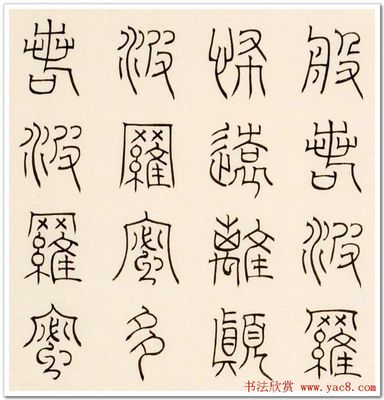 般若波羅
怖遠離顛
波羅蜜多
若波羅蜜
书法欣赏 www.yac8.com